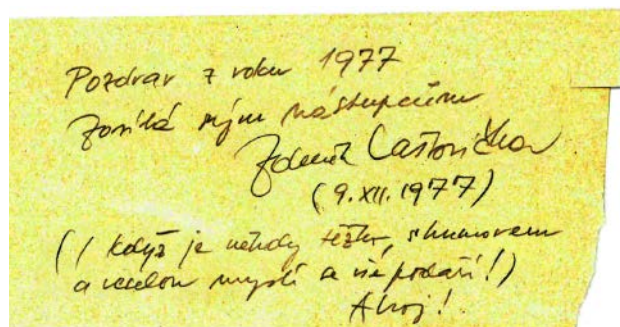 Pozdrav z roku 1977
Posílá mým nástupcům
Zdeněk
(9.XII.1977)
(I když je někdy těžko, s humorem
a veselou myslí a vše podaří!)
Ahoj!